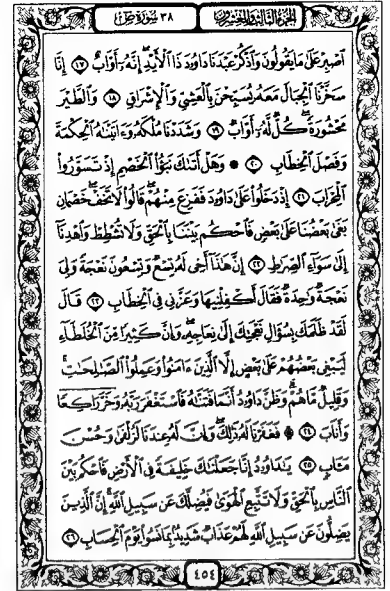 سورة ص ٣٨
الجزء الثالث والعشرون
ٱصۡبِرۡ عَلَىٰ مَا يَقُولُونَ وَٱذۡكُرۡ عَبۡدَنَا دَاوُۥدَ ذَا ٱلۡأَيۡدِۖ إِنَّهُۥٓ أَوَّابٌ ١٧ إِنَّا
سَخَّرۡنَا ٱلۡجِبَالَ مَعَهُۥ يُسَبِّحۡنَ بِٱلۡعَشِيِّ وَٱلۡإِشۡرَاقِ ١٨ وَٱلطَّيۡرَ
مَحۡشُورَةٗۖ كُلّٞ لَّهُۥٓ أَوَّابٞ ١٩ وَشَدَدۡنَا مُلۡكَهُۥ وَءَاتَيۡنَٰهُ ٱلۡحِكۡمَةَ
وَفَصۡلَ ٱلۡخِطَابِ ٢٠ ۞ وَهَلۡ أَتَىٰكَ نَبَؤُاْ ٱلۡخَصۡمِ إِذۡ تَسَوَّرُواْ
ٱلۡمِحۡرَابَ ٢١ إِذۡ دَخَلُواْ عَلَىٰ دَاوُۥدَ فَفَزِعَ مِنۡهُمۡۖ قَالُواْ لَا تَخَفۡۖ خَصۡمَانِ
بَغَىٰ بَعۡضُنَا عَلَىٰ بَعۡضٖ فَٱحۡكُم بَيۡنَنَا بِٱلۡحَقِّ وَلَا تُشۡطِطۡ وَٱهۡدِنَآ
إِلَىٰ سَوَآءِ ٱلصِّرَٰطِ ٢٢ إِنَّ هَٰذَآ أَخِي لَهُۥ تِسۡعٞ وَتِسۡعُونَ نَعۡجَةٗ وَلِيَ
نَعۡجَةٞ وَٰحِدَةٞ فَقَالَ أَكۡفِلۡنِيهَا وَعَزَّنِي فِي ٱلۡخِطَابِ ٢٣ قَالَ
لَقَدۡ ظَلَمَكَ بِسُؤَالِ نَعۡجَتِكَ إِلَىٰ نِعَاجِهِۦۖ وَإِنَّ كَثِيرٗا مِّنَ ٱلۡخُلَطَآءِ
لَيَبۡغِي بَعۡضُهُمۡ عَلَىٰ بَعۡضٍ إِلَّا ٱلَّذِينَ ءَامَنُواْ وَعَمِلُواْ ٱلصَّٰلِحَٰتِ
وَقَلِيلٞ مَّا هُمۡۗ وَظَنَّ دَاوُۥدُ أَنَّمَا فَتَنَّٰهُ فَٱسۡتَغۡفَرَ رَبَّهُۥ وَخَرَّۤ رَاكِعٗاۤ
وَأَنَابَ ٢٤ ۞ فَغَفَرۡنَا لَهُۥ ذَٰلِكَۖ وَإِنَّ لَهُۥ عِندَنَا لَزُلۡفَىٰ وَحُسۡنَ
مَـَٔابٖ ٢٥ يَٰدَاوُۥدُ إِنَّا جَعَلۡنَٰكَ خَلِيفَةٗ فِي ٱلۡأَرۡضِ فَٱحۡكُم بَيۡنَ
ٱلنَّاسِ بِٱلۡحَقِّ وَلَا تَتَّبِعِ ٱلۡهَوَىٰ فَيُضِلَّكَ عَن سَبِيلِ ٱللَّهِۚ إِنَّ ٱلَّذِينَ
يَضِلُّونَ عَن سَبِيلِ ٱللَّهِ لَهُمۡ عَذَابٞ شَدِيدُۢ بِمَا نَسُواْ يَوۡمَ ٱلۡحِسَابِ ٢٦
٤٥٤